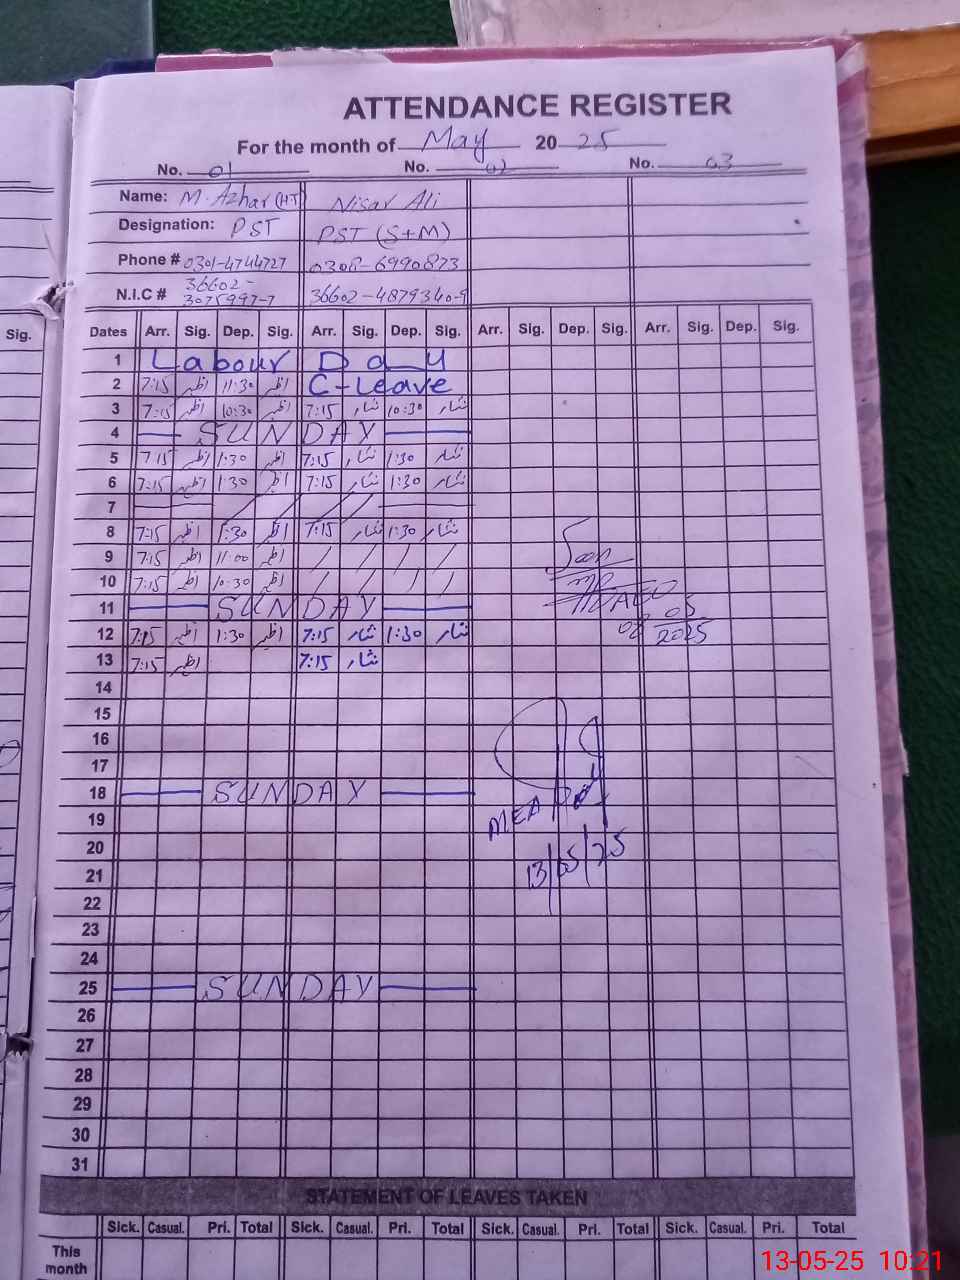 ATTENDANCE REGISTER
For the month of May 2025
No. 01 No. 02 No. 03
Name: M. Azhar (HT) Nisar Ali
Designation: PST PST (S+M)
Phone # 0301-4744727 0308-6990873
N.I.C # 36602-3075997-7 36602-4879340-9
Sig.
Dates Arr. Sig. Dep. Sig. Arr. Sig. Dep. Sig. Arr. Sig. Dep. Sig. Arr. Sig. Dep. Sig.
1 Labour Day
2 7:15 اظہر 11:30 اظہر C-Leave
3 7:15 اظہر 10:30 اظہر 7:15 نثار 10:30 نثار
4 SUNDAY
5 7:15 اظہر 1:30 اظہر 7:15 نثار 1:30 نثار
6 7:15 اظہر 1:30 اظہر 7:15 نثار 1:30 نثار
7
8 7:15 اظہر 1:30 اظہر 7:15 نثار 1:30 نثار
9 7:15 اظہر 11:00 اظہر
10 7:15 اظہر 10:30 اظہر
11 SUNDAY
12 7:15 اظہر 1:30 اظہر 7:15 نثار 1:30 نثار
13 7:15 اظہر 7:15 نثار
Seen
AEO
08 05
2025
14
15
16
17
18 SUNDAY
19
MEA
20
21
13/05/25
22
23
24
25 SUNDAY
26
27
28
29
30
31
STATEMENT OF LEAVES TAKEN
Sick. Casual. Pri. Total Sick. Casual. Pri. Total Sick. Casual. Pri. Total Sick. Casual. Pri. Total
This
month
13-05-25 10:21